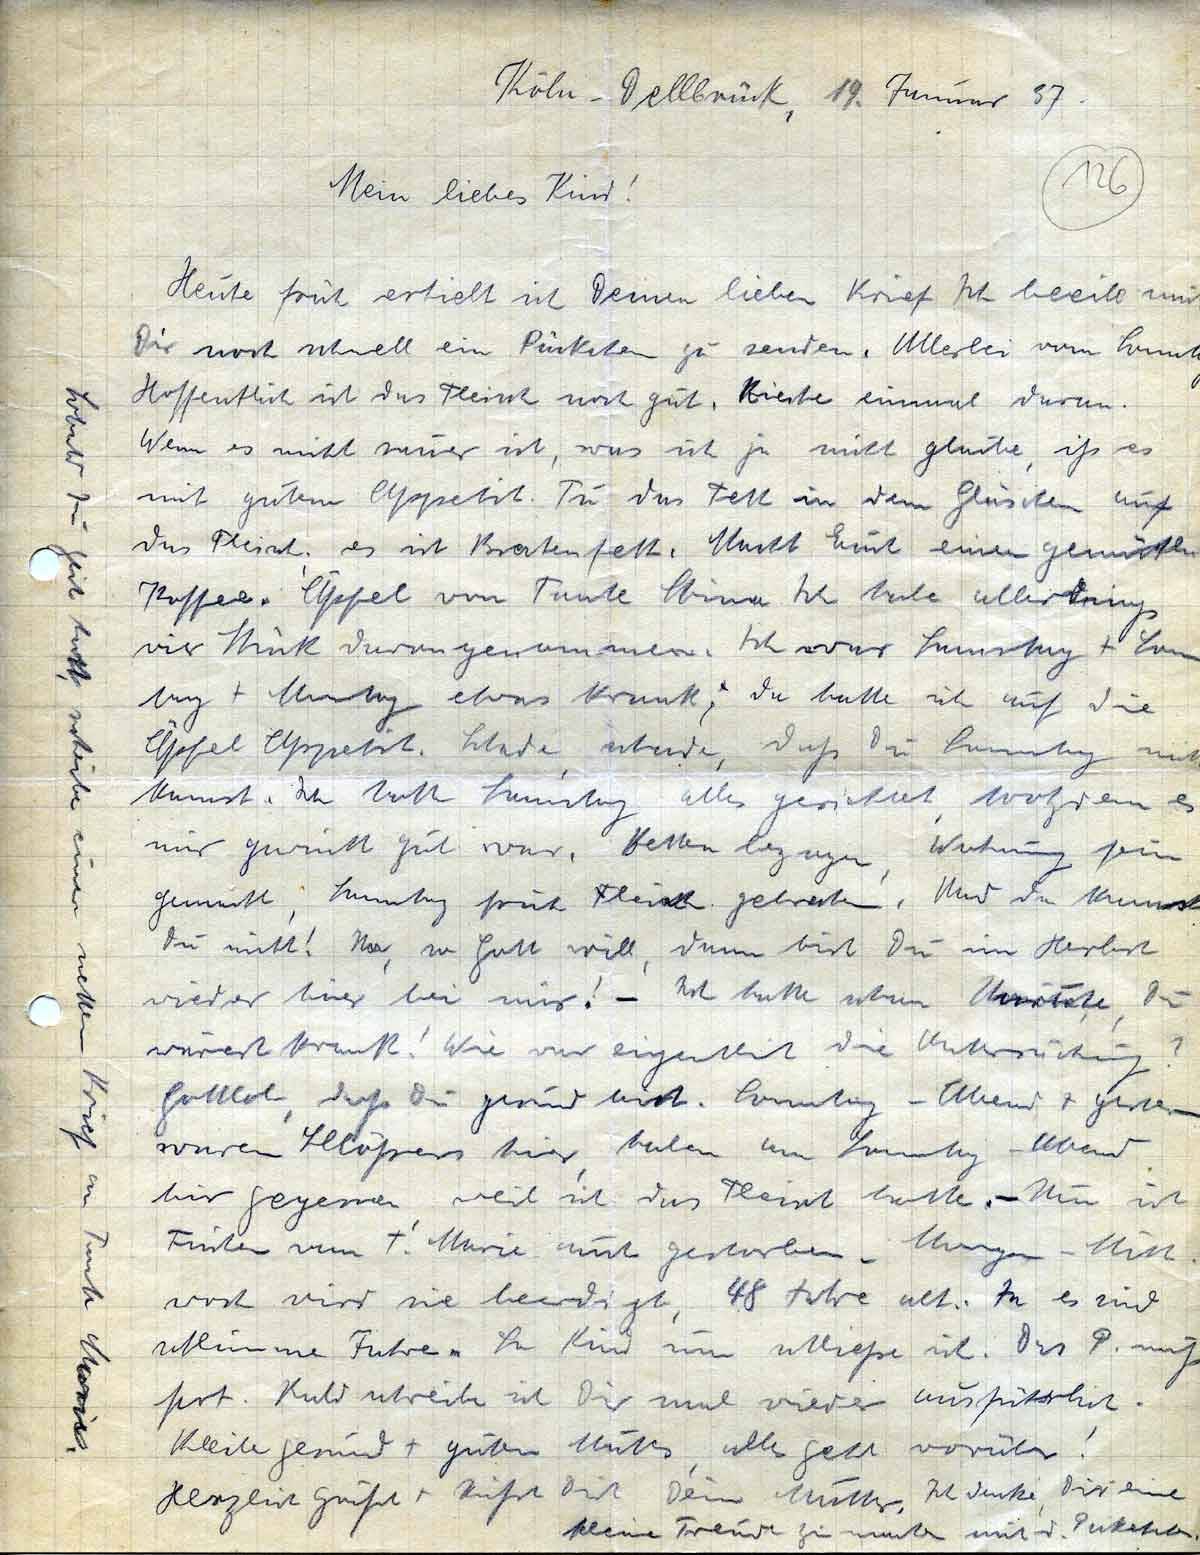 Köln-Dellbrück, 19. Januar 37.
126
Mein liebes Kind!
Heute früh erhielt ich Deinen lieben Brief Ich beeile mich
Dir noch schnell ein Päckchen zu senden. Allerlei vom Sonntag
Hoffentlich ist das Fleisch noch gut. Rieche einmal daran.
Wenn es nicht sauer ist, was ich ja nicht glaube, iß es
mit gutem Appetit. Tu das Fett in dem Gläschen auf
das Fleisch, es ist Bratenfett. Macht Euch einen gemütlichen
Kaffee. Äpfel von Tante Ich habe allerdings
vier Stück davongenommen. Ich war Samstag + Sonn
tag + Montag etwas krank, da hatte ich auf die
Äpfel Appetit. Schade, schade, daß Du Sonntag nicht
kamst. Ich hatte Samstag alles gerichtet, trotzdem es
mir garnicht gut war. Betten bezogen, Wohnung fein
gemacht, Sonntag früh Fleisch gebraten. Und da kamst
Du nicht! Na, so Gott will, dann bist Du im Herbst
wieder hier bei mir! – Ich hatte schon Unruhe, Du
wärest krank! Wie war eigentlich die Untersuchung?
Gottlob, daß Du gesund bist. Sonntag-Abend + gestern
waren hier, haben am Sonntag-Abend
hier gegessen weil ich das Fleisch hatte. – Nun ist
von T. Marie auch gestorben. Morgen-Mitt
woch wird sie beerdigt, 48 Jahre alt. Ja es sind
schlimme Jahre. So Kind nun schließe ich. Das P. muß
fort. Bald schreibe ich Dir mal wieder ausführlich.
Bleibe gesund + guten Muts, alles geht vorüber!
Herzlich grüßt + küßt Dich Deine Mutter. Ich denke, Dir eine
kleine Freude zu machen mit d. Päckchen.
Sobald Du Zeit hast, schreibe einen netten Brief an Tante